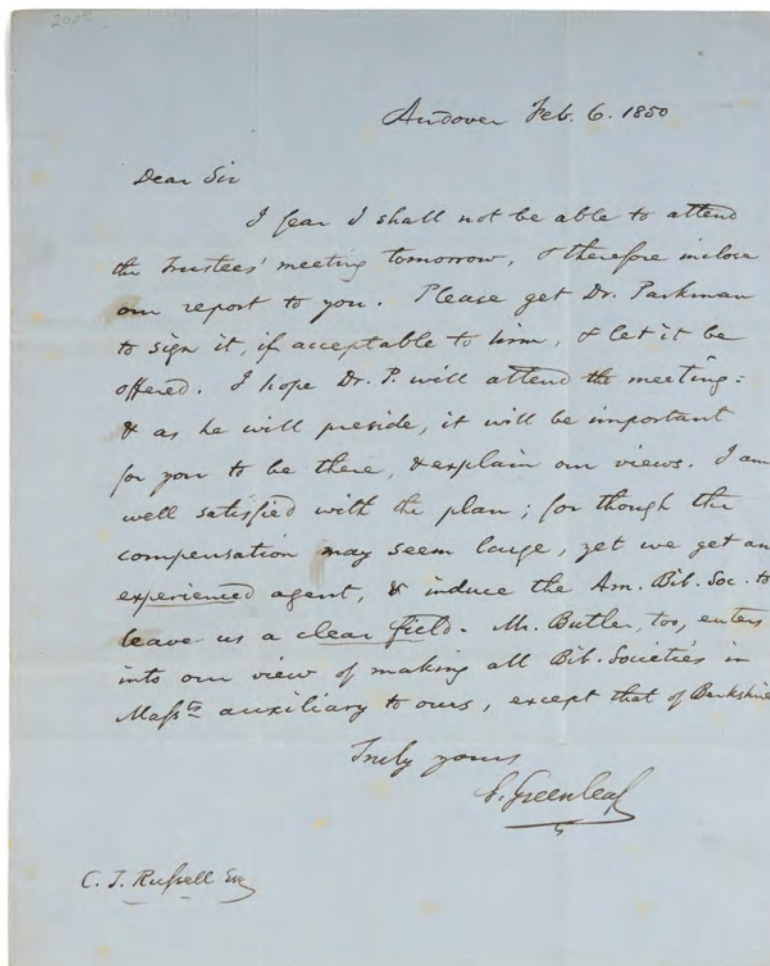 Andover Feb. 6. 1850
Dear Sir
I fear I shall not be able to attend
the Trustees' meeting tomorrow, & therefore inclose
our report to you. Please get Dr. Parkman
to sign it, if acceptable to him, & let it be
offered. I hope Dr. P. will attend the meeting:
& as he will preside, it will be important
for you to be there, & explain our views. I am
well satisfied with the plan; for though the
compensation may seem large, yet we get an
experienced agent, & induce the Am. Bib. Soc. to
leave us a clear field. Mr. Butler, too, enters
into our view of making all Bib. Societies in
Massts auxiliary to ours, except that of Berkshire
Truly yours
S. Greenleaf
C. T. Russell Esq